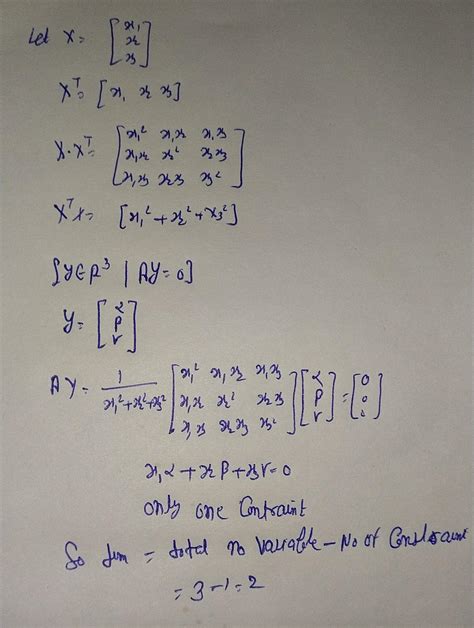 Let X = [x₁ x₂ x₃]
Xᵀ = [x₁ x₂ x₃]
X·Xᵀ = [x₁² x₁x₂ x₁x₃
x₁x₂ x₂² x₂x₃
x₁x₃ x₂x₃ x₃²]
XᵀX = [x₁² + x₂² + x₃²]
{Y∈R³ | AY=0}
Y = [α β γ]
AY = 1/(x₁²+x₂²+x₃²) [x₁² x₁x₂ x₁x₃
x₁x₂ x₂² x₂x₃
x₁x₃ x₂x₃ x₃²] [α β γ] = [0 0 0]
x₁α + x₂β + x₃γ = 0
only one Contraint
So dim = total no variable – No of Constraint
= 3-1 = 2